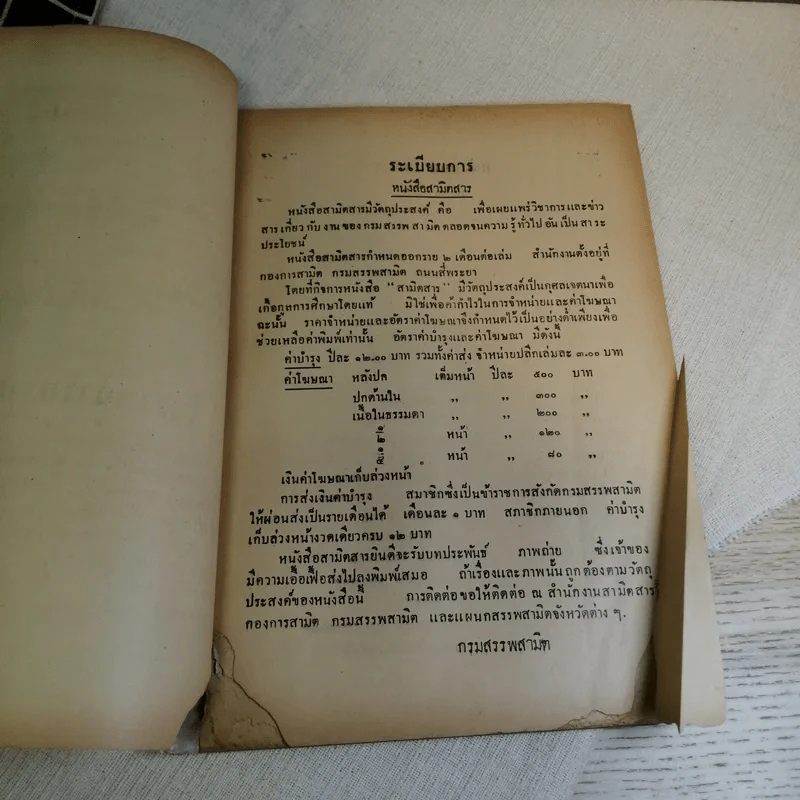 ระเบียบการ
หนังสือสามิตสาร
หนังสือสามิตสารมีวัตถุประสงค์ คือ เพื่อเผยแพร่วิชาการและข่าว
สารเกี่ยวกับงานของกรมสรรพสามิต ตลอดจนความรู้ทั่วไป อันเป็นสาระ
ประโยชน์
หนังสือสามิตสารกำหนดออกราย ๒ เดือนต่อเล่ม สำนักงานตั้งอยู่ที่
กองการสามิต กรมสรรพสามิต ถนนสี่พระยา
โดยที่กิจการหนังสือ "สามิตสาร" มีวัตถุประสงค์เป็นกุศลเจตนาเพื่อ
เกื้อกูลการศึกษาโดยแท้ มิใช่เพื่อค้ากำไรในการจำหน่ายและค่าโฆษณา
ฉะนั้น ราคาจำหน่ายและอัตราค่าโฆษณาจึงกำหนดไว้เป็นอย่างต่ำเพียงเพื่อ
ช่วยเหลือค่าพิมพ์เท่านั้น อัตราค่าบำรุงและค่าโฆษณา มีดังนี้
ค่าบำรุง ปีละ ๑๒.๐๐ บาท รวมทั้งค่าส่ง จำหน่ายปลีกเล่มละ ๓.๐๐ บาท
ค่าโฆษณา หลังปก เต็มหน้า ปีละ ๕๐๐ บาท
ปกด้านใน ,, ,, ๓๐๐ ,,
เนื้อในธรรมดา ,, ,, ๒๐๐ ,,
๑/๒ หน้า ,, ๑๒๐ ,,
๑/๔ หน้า ,, ๘๐ ,,
เงินค่าโฆษณาเก็บล่วงหน้า
การส่งเงินค่าบำรุง สมาชิกซึ่งเป็นข้าราชการสังกัดกรมสรรพสามิต
ให้ผ่อนส่งเป็นรายเดือนได้ เดือนละ ๑ บาท สมาชิกภายนอก ค่าบำรุง
เก็บล่วงหน้างวดเดียวครบ ๑๒ บาท
หนังสือสามิตสารยินดีจะรับบทประพันธ์ ภาพถ่าย ซึ่งเจ้าของ
มีความเอื้อเฟื้อส่งไปลงพิมพ์เสมอ ถ้าเรื่องและภาพนั้นถูกต้องตามวัตถุ
ประสงค์ของหนังสือนี้ การติดต่อขอให้ติดต่อ ณ สำนักงานสามิตสาร
กองการสามิต กรมสรรพสามิต และแผนกสรรพสามิตจังหวัดต่าง ๆ.
กรมสรรพสามิต